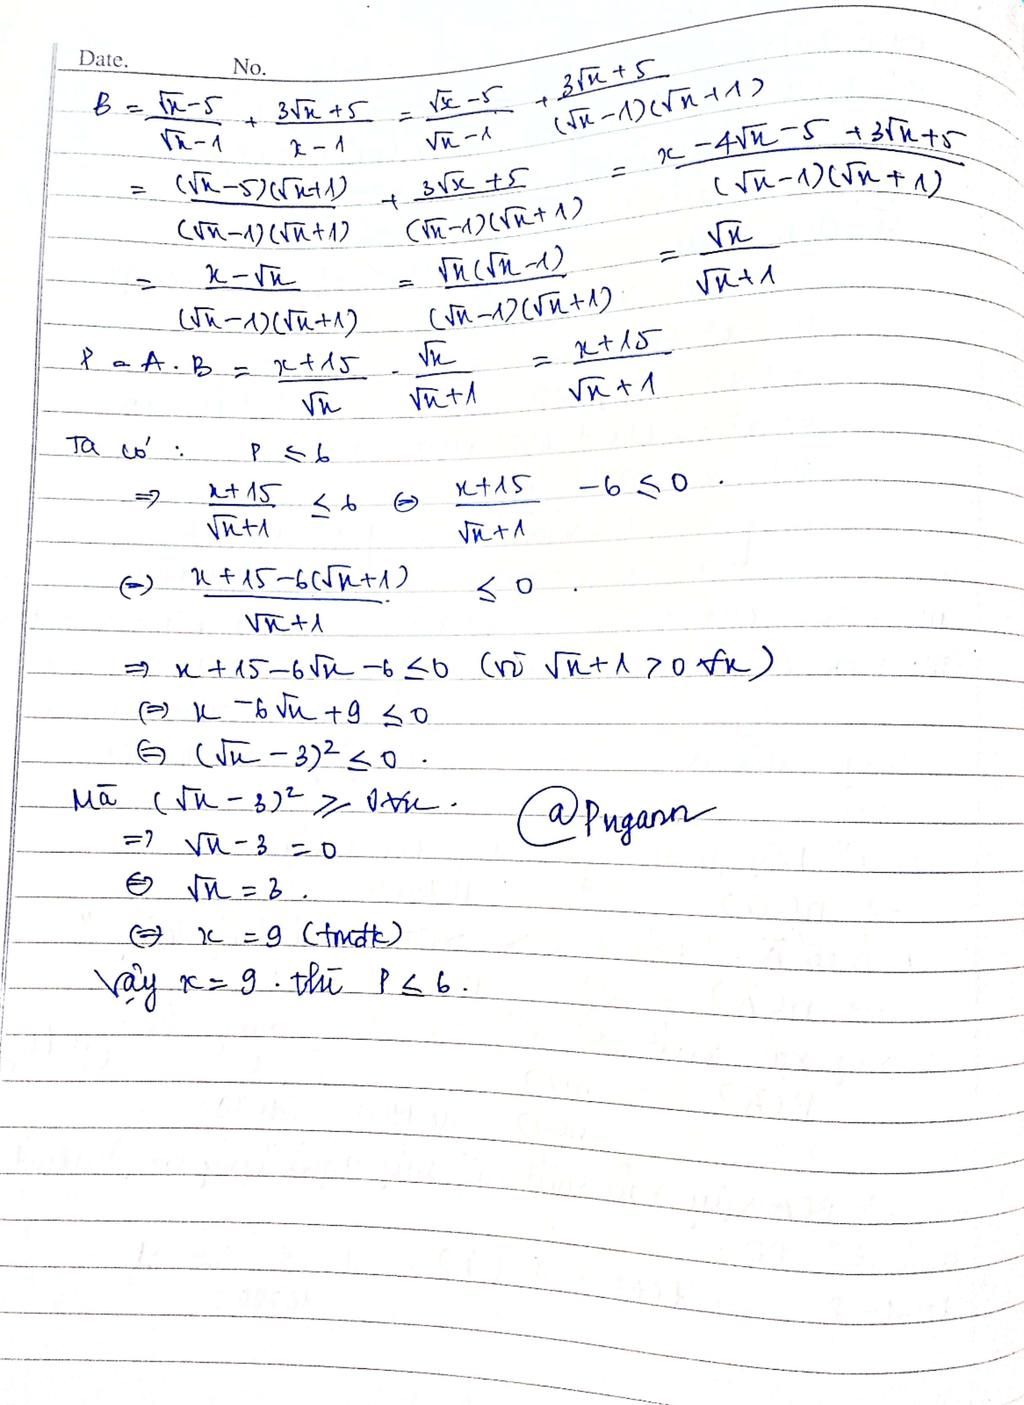 Date. No.
B = (√x-5)/(√x-1) + (3√x+5)/(x-1) = (√x-5)/(√x-1) + (3√x+5)/((√x-1)(√x+1))
= ((√x-5)(√x+1))/((√x-1)(√x+1)) + (3√x+5)/((√x-1)(√x+1)) = (x-4√x-5+3√x+5)/((√x-1)(√x+1))
= (x-√x)/((√x-1)(√x+1)) = (√x(√x-1))/((√x-1)(√x+1)) = √x/(√x+1)
P = A.B = (x+15)/√x . √x/(√x+1) = (x+15)/(√x+1)
Ta có : P ≤ 6
⇒ (x+15)/(√x+1) ≤ 6 ⇔ (x+15)/(√x+1) -6 ≤ 0 .
⇔ (x+15-6(√x+1))/(√x+1) ≤ 0 .
⇒ x+15-6√x-6 ≤ 0 (vì √x+1 > 0 ∀x)
⇔ x-6√x+9 ≤ 0
⇔ (√x-3)² ≤ 0 .
Mà (√x-3)² ≥ 0 ∀x .
⇒ √x-3 = 0
⇔ √x = 3 .
⇔ x = 9 (tmđk)
Vậy x = 9 . thì P ≤ 6 .
@Pngann